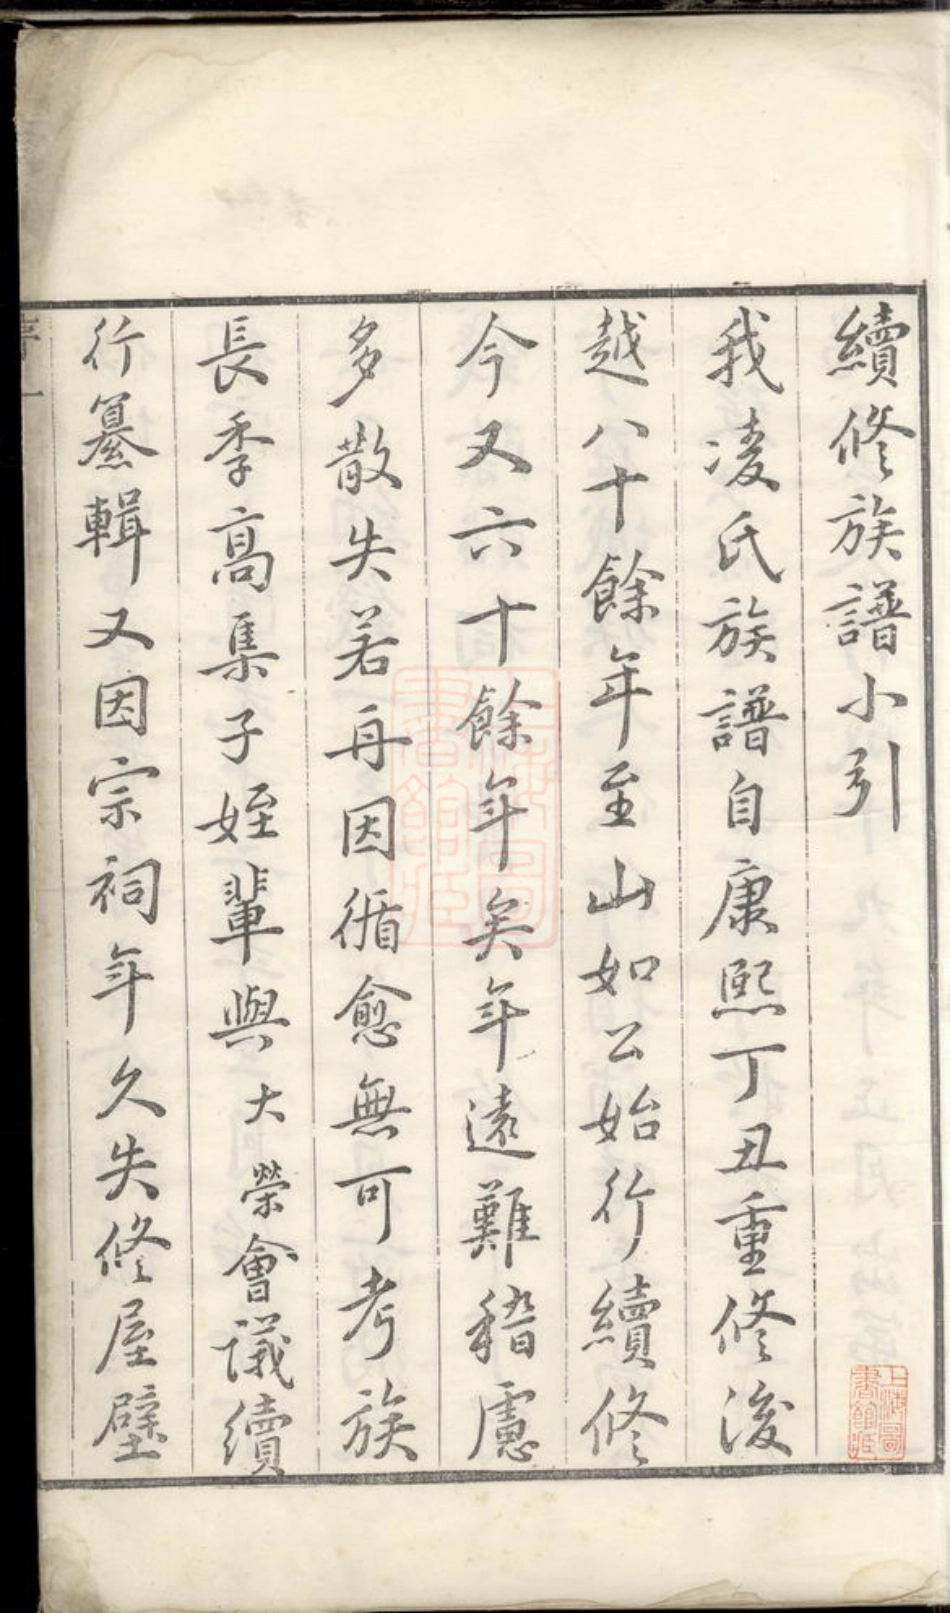 續修族譜小引
我凌氏族譜自康熙丁丑重修後
越八十餘年至山如公始行續修
今又六十餘年矣年遠難稽慮
多散失若再因循愈無可考族
長季高集子姪輩與大榮會議續
行纂輯又因宗祠年久失修屋壁
序一
上海圖書館藏
上海圖書館藏